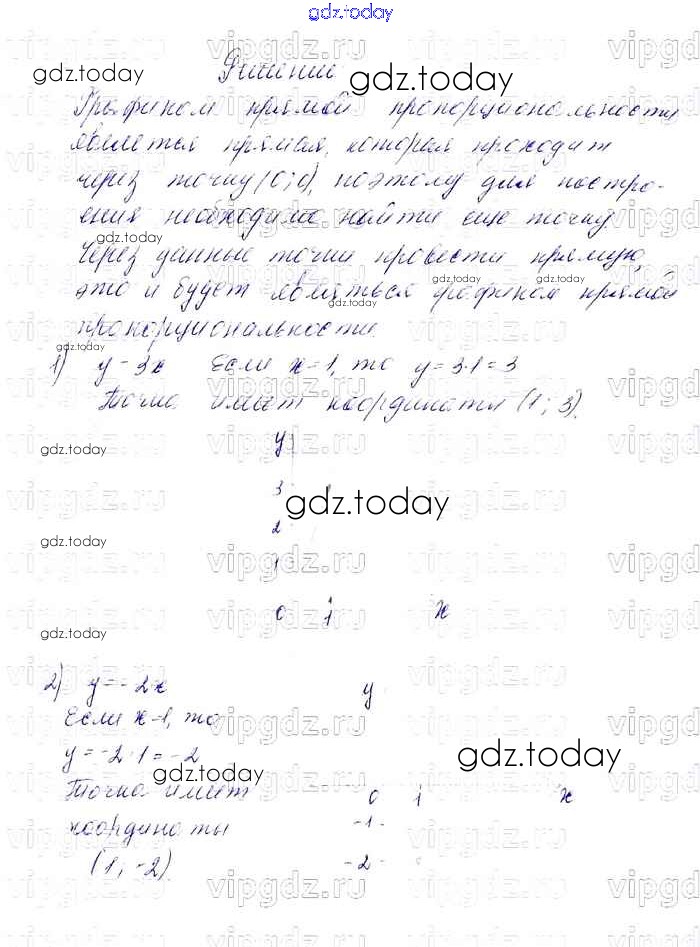 gdz.today
Решение
Графиком прямой пропорциональности
является прямая, которая проходит
через точку (0; 0), поэтому для постро-
ения необходимо найти еще точку
Через данные точки провести прямую,
это и будет являться графиком прямой
пропорциональности.
1) y = 3x Если x = 1, то y = 3·1 = 3
Точка имеет координаты (1; 3).
y
3
2
1
0 1 x
2) y = -2x
Если x = 1, то
y = -2·1 = -2
Точка имеет
координаты
(1; -2).
y
0 1 x
-1
-2
gdz.today
gdz.today
gdz.today
gdz.today
gdz.today
gdz.today
gdz.today
gdz.today
gdz.today
gdz.today
gdz.today
vipgdz.ru